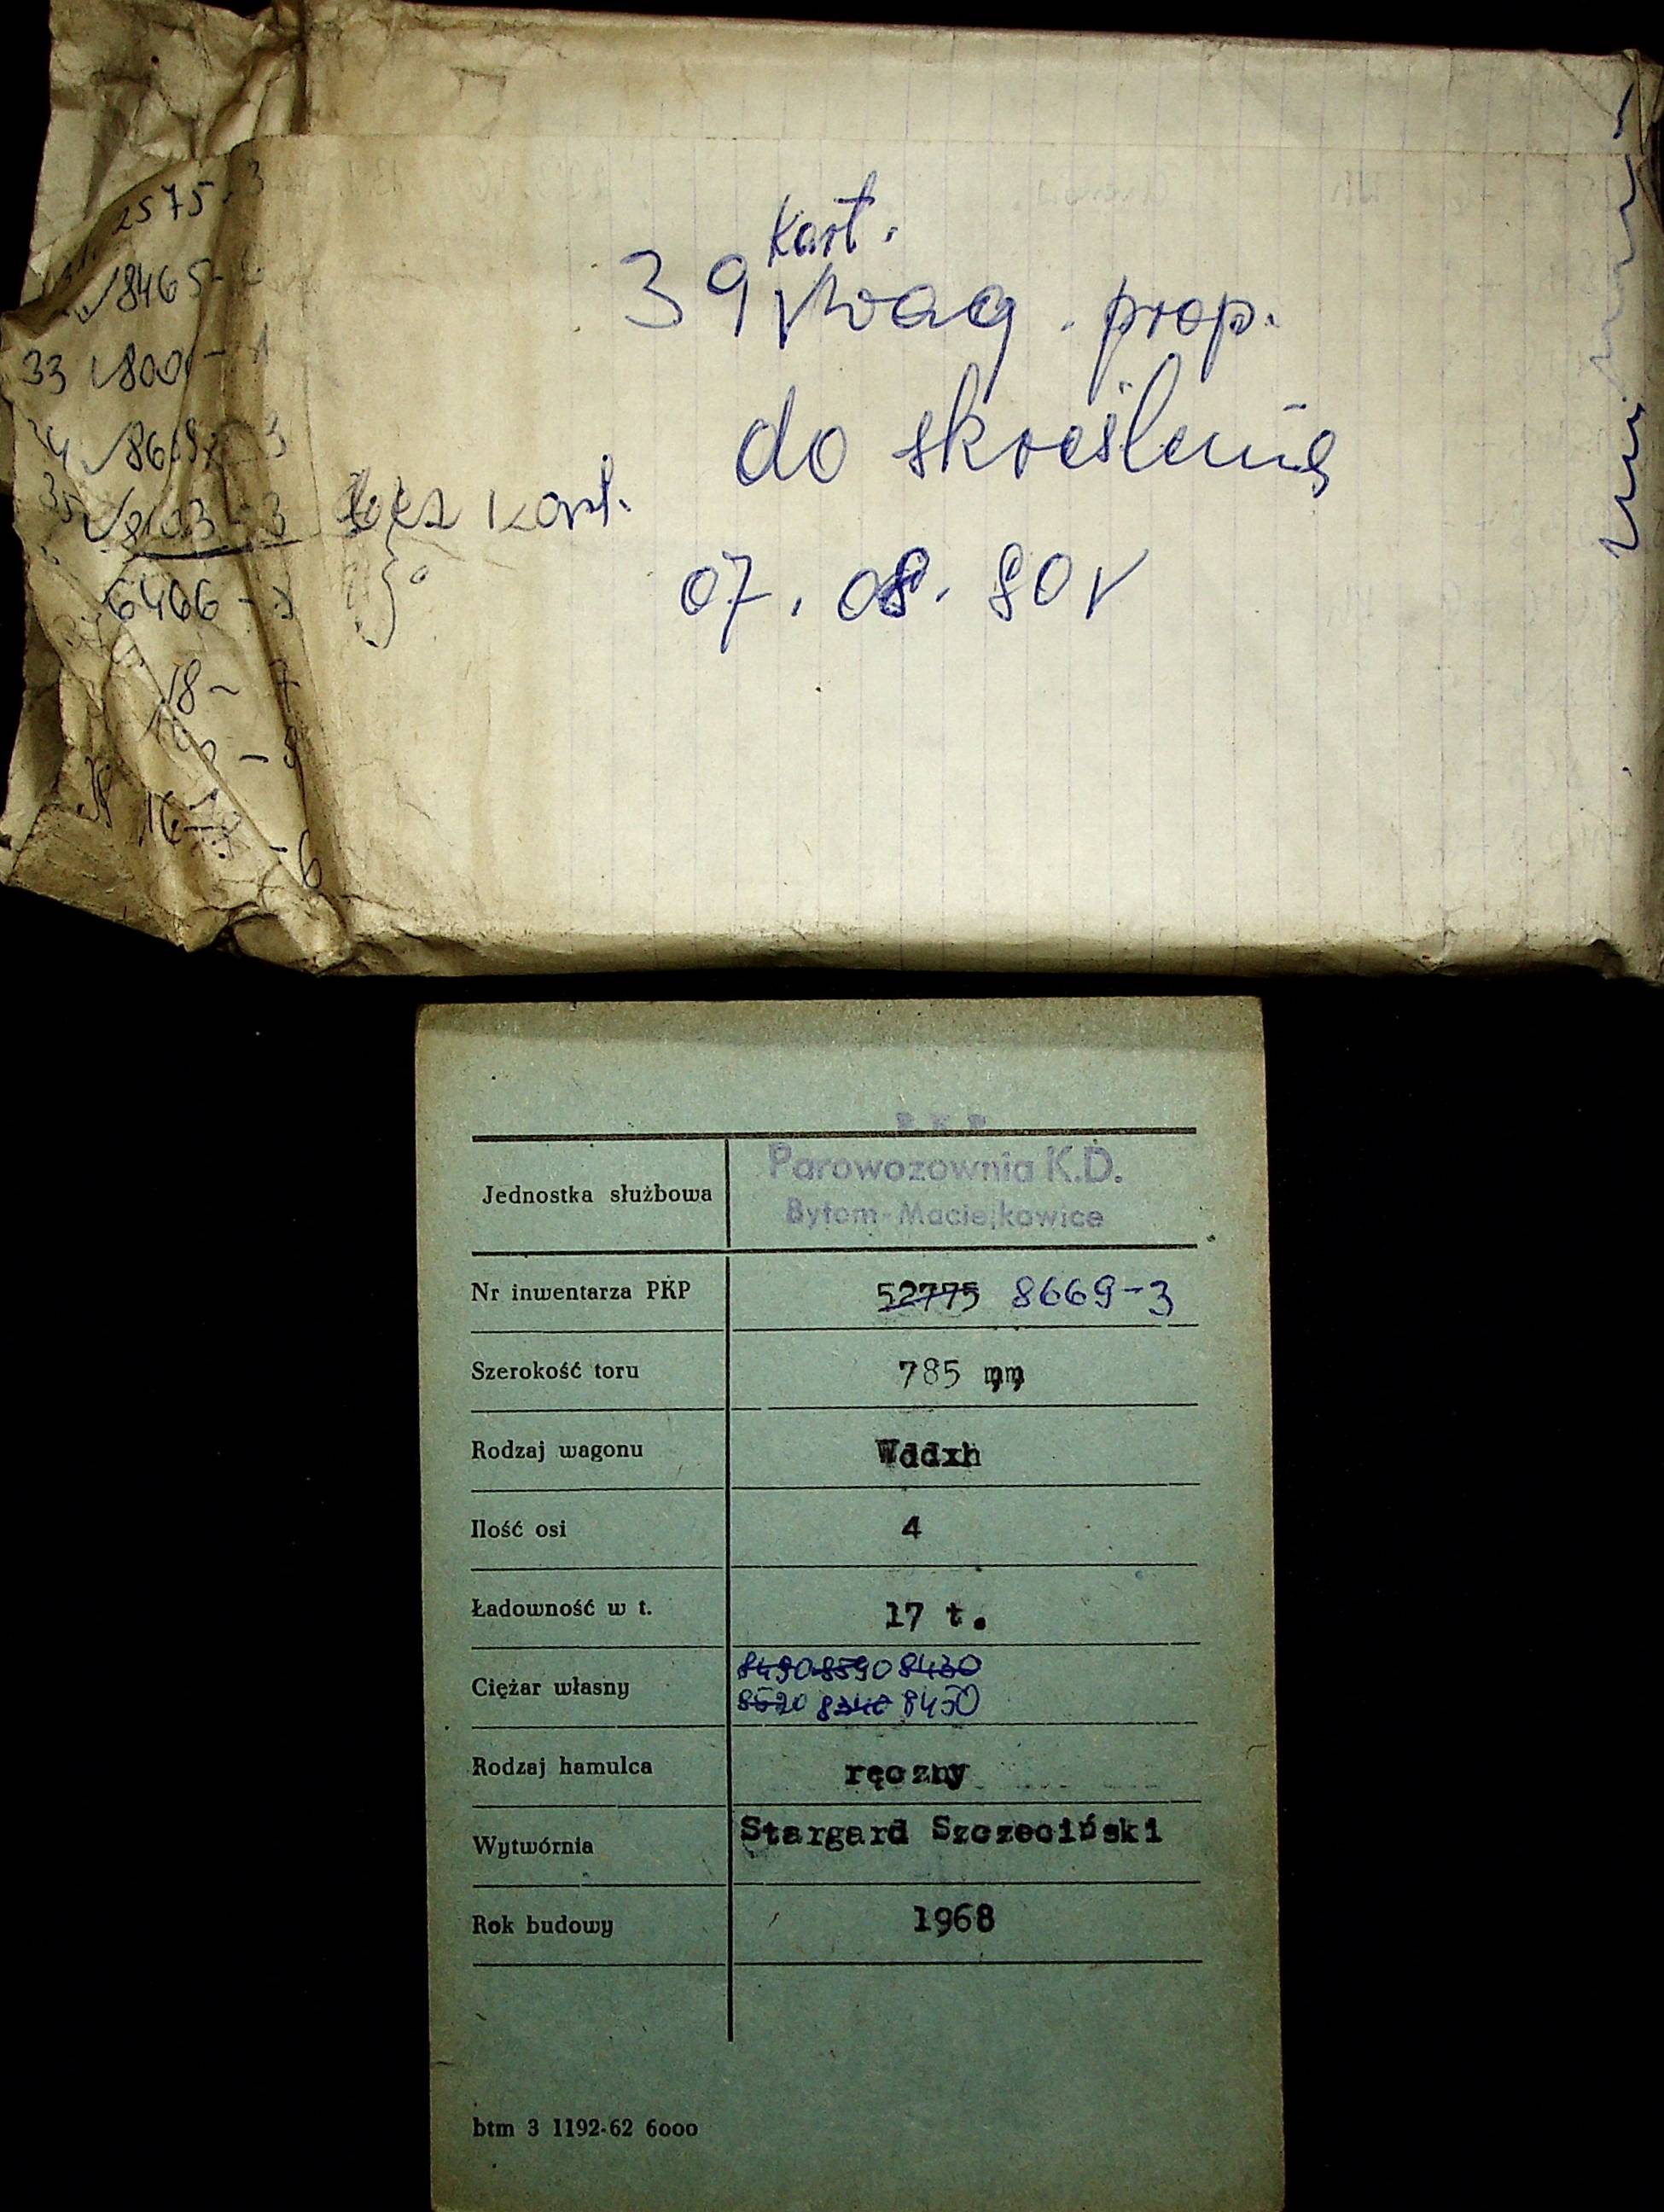 2575-3
8465-
33 800
8669-3
35 8103-3 bez kart.
6466-
18-
-6
Kart.
39 wag. prop.
do skreślenia
07.08.80r
P.K.P.
Parowozownia K.D.
Bytom-Maciejkowice
Jednostka służbowa
Nr inwentarza PKP 52775 8669-3
Szerokość toru 785 mm
Rodzaj wagonu Wddxh
Ilość osi 4
Ładowność w t. 17 t.
8490 8590 8430
Ciężar własny
8520 8340 8450
Rodzaj hamulca ręczny
Wytwórnia Stargard Szczeciński
Rok budowy 1968
btm 3 1192-62 6000